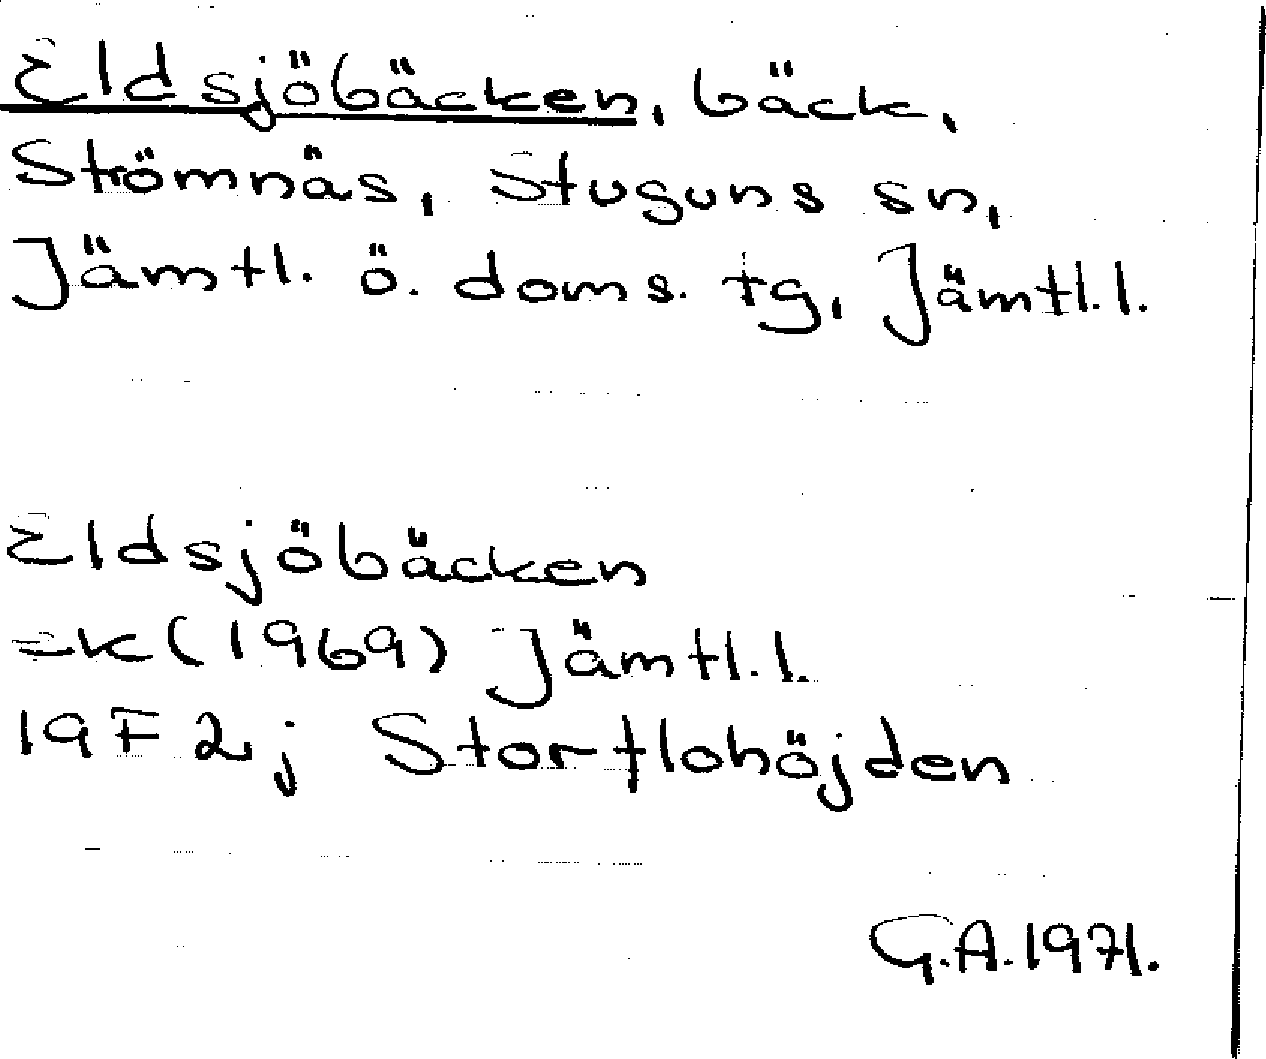 Eldsjöbäcken, bäck,
Strömnäs, Stuguns sn,
Jämtl. ö. doms. tg, Jämtl. l.
Eldsjöbäcken
=k(1969) Jämtl. l.
19F 2j Storflohöjden
G.A. 1971.